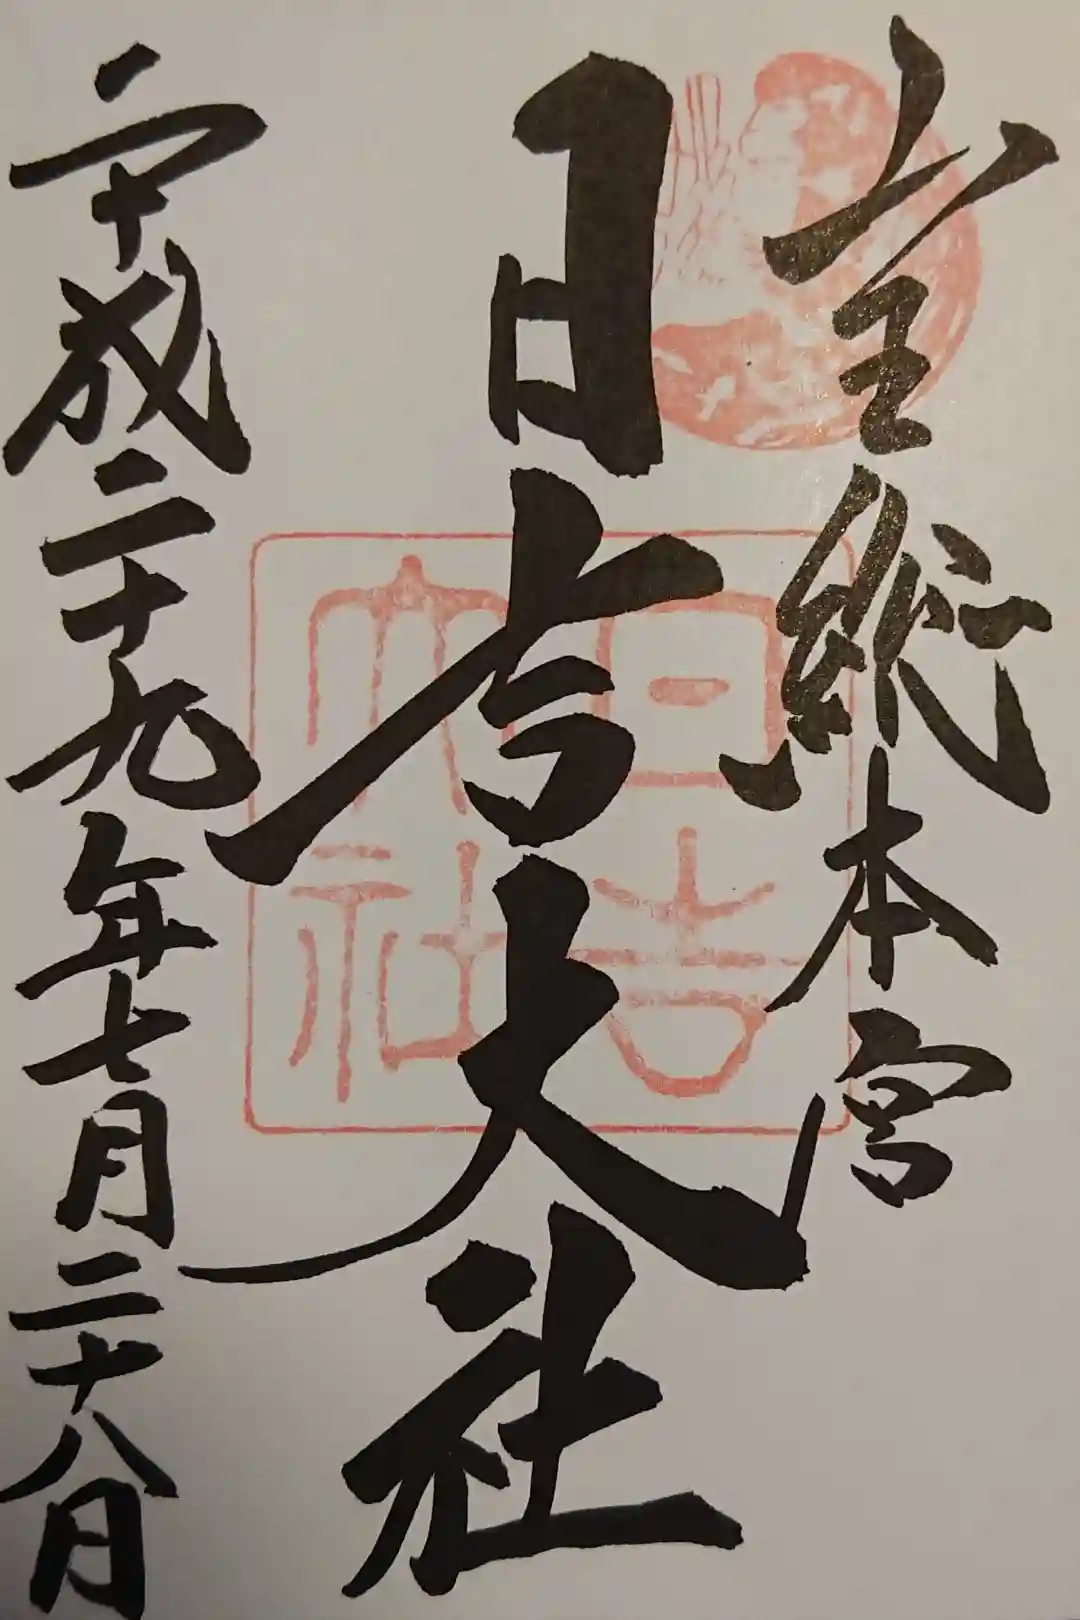 全総本宮
日吉大社
平成二十九年七月二十八日
日吉
大社